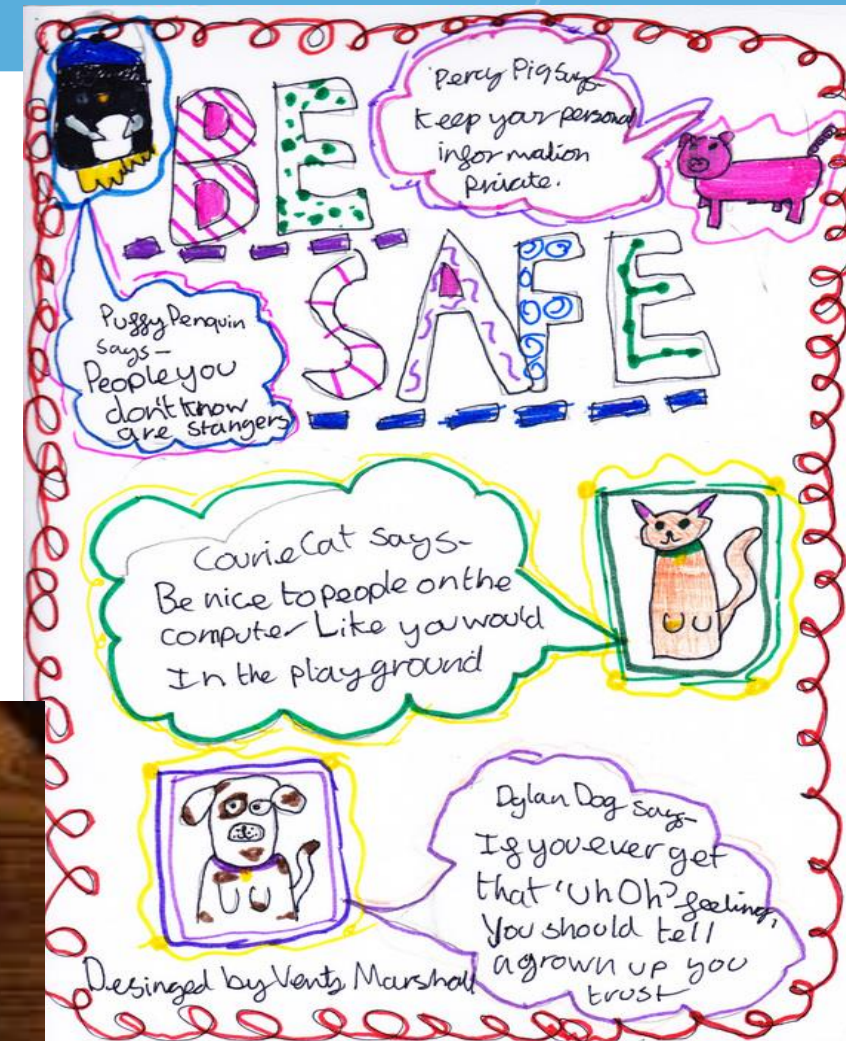 BE
SAFE
Percy Pig says-
Keep your personal
information
private.
Puffy Penguin
says-
People you
don't know
are stangers
Courie Cat says-
Be nice to people on the
computer Like you would
In the play ground
Dylan Dog says-
If you ever get
that 'Uh Oh' feeling,
You should tell
a grown up you
trust
Desinged by Marshall